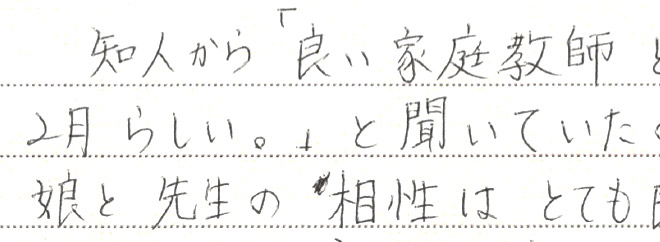 知人から「良い家庭教師と
2月らしい。」と聞いていた
娘と先生の相性はとても